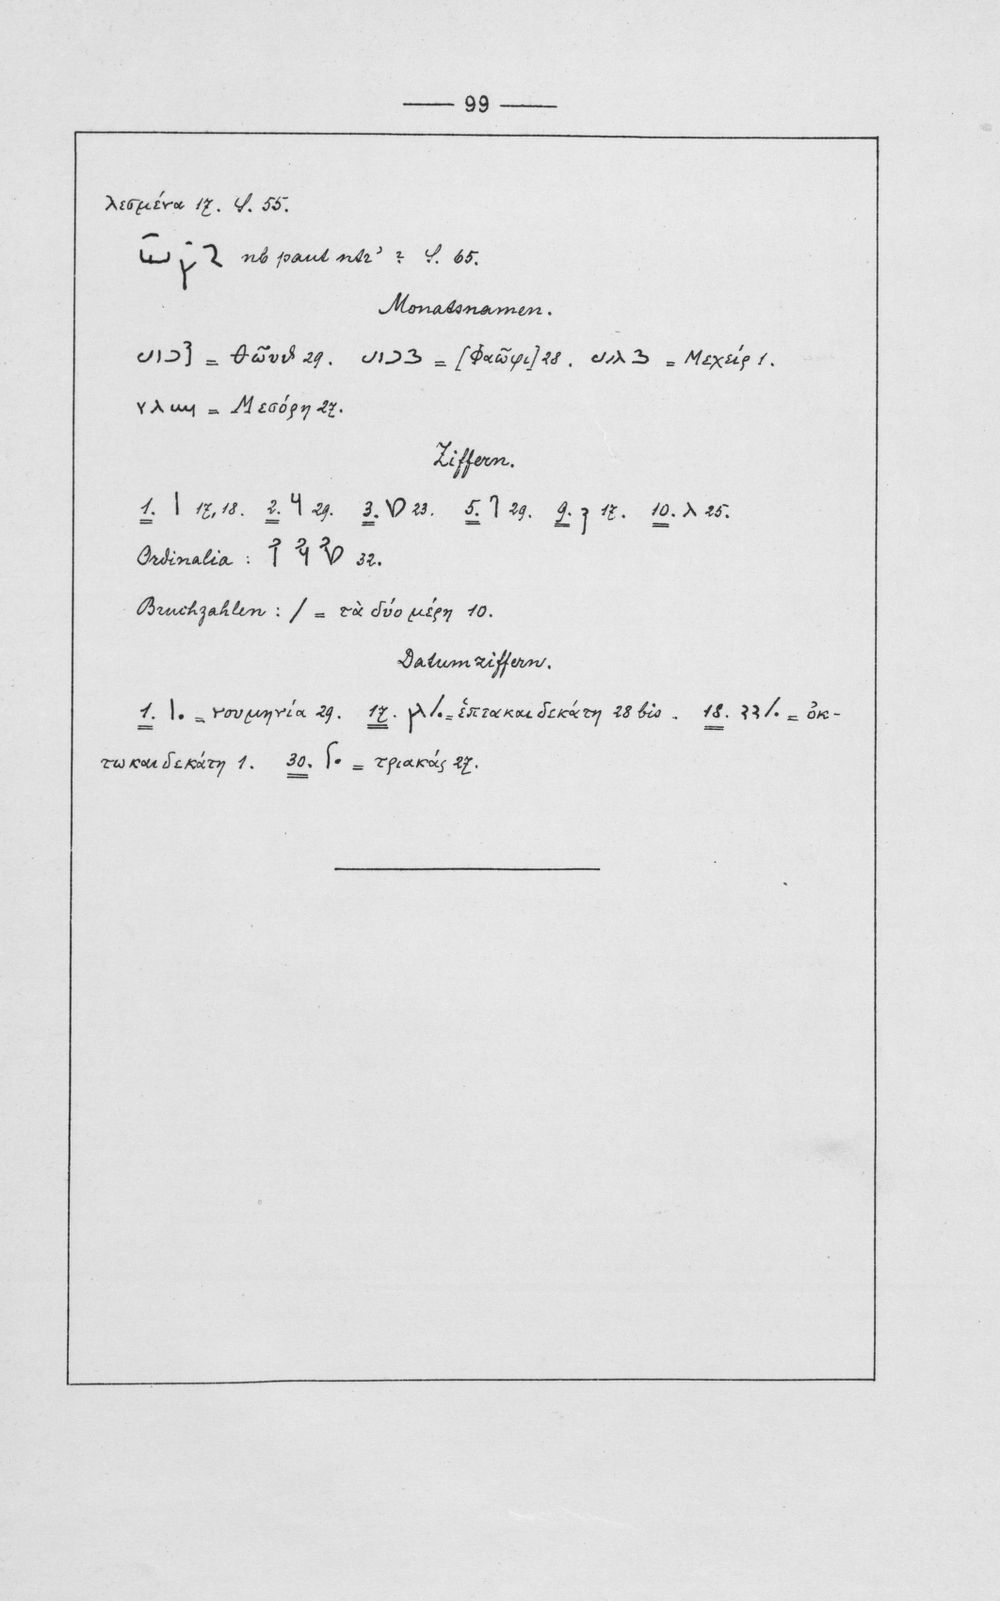 — 99 —
λεσμένα 17. φ. 55.
nb paut ntr' ? φ. 65.
Monatsnamen.
= θῶυθ 29. = [Φαῶφι] 28. = Μεχείρ 1.
= Μεσόρη 27.
Ziffern.
1. 17, 18. 2. 29. 3. 23. 5. 29. 9. 17. 10. 25.
Ordinalia : 32.
Bruchzahlen : / = τὰ δύο μέρη 10.
Datumziffern.
1. = νουμηνία 29. 17. = ἑπτακαιδεκάτη 28 bis. 18. = ὀκ-
τωκαιδεκάτη 1. 30. = τριακάς 27.